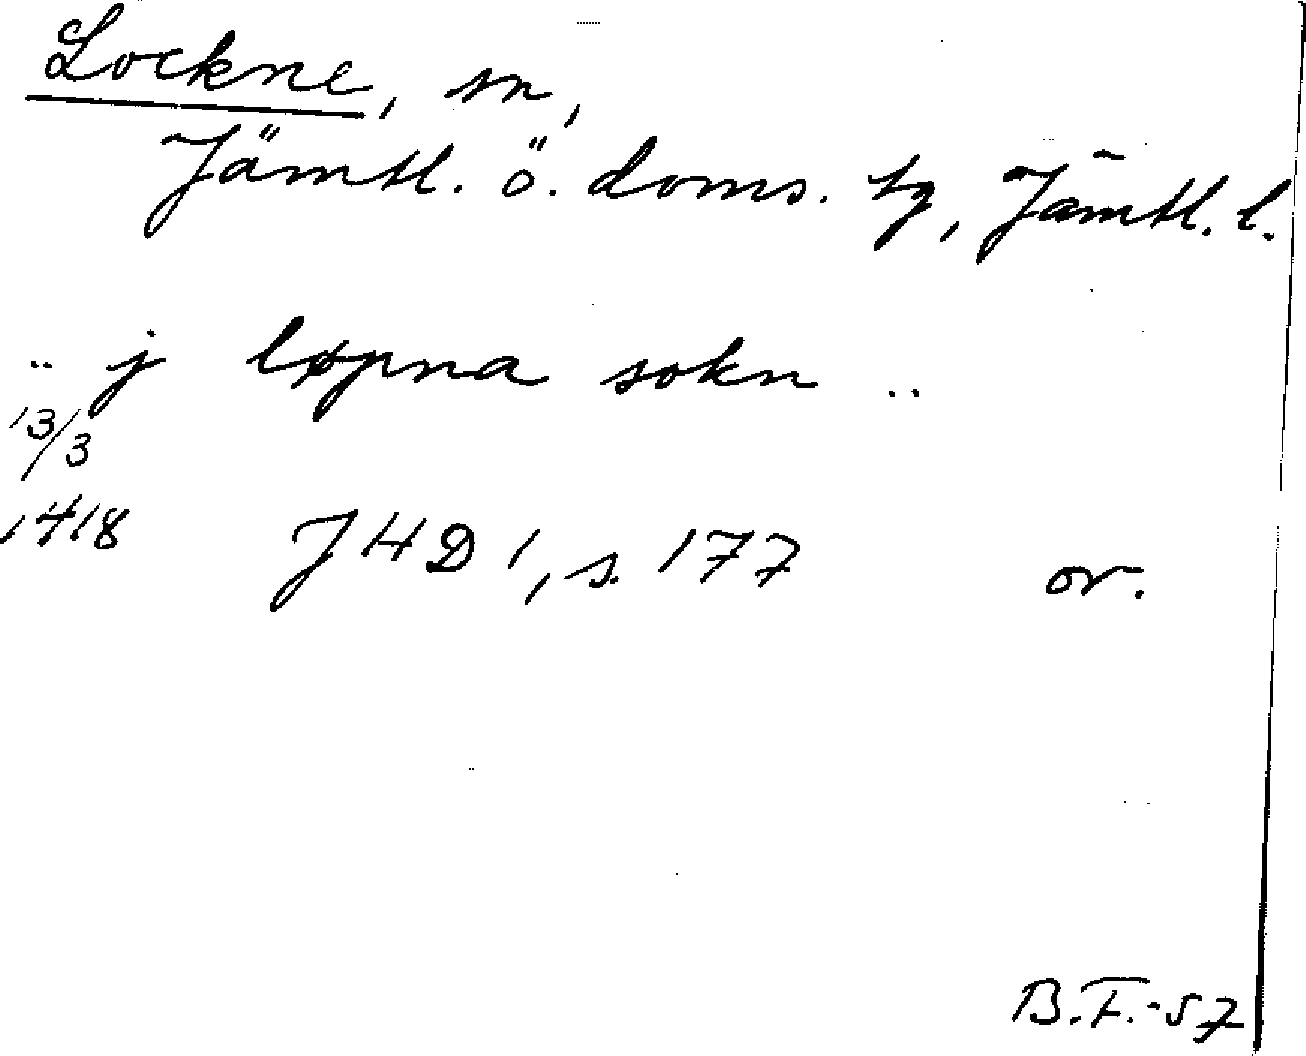 Lockne, sn,
Jämtl. ö. doms. tg, Jämtl. l.
.. j løpna sokn ..
13/3
1418 JHD 1, s. 177 or.
B.F.-57